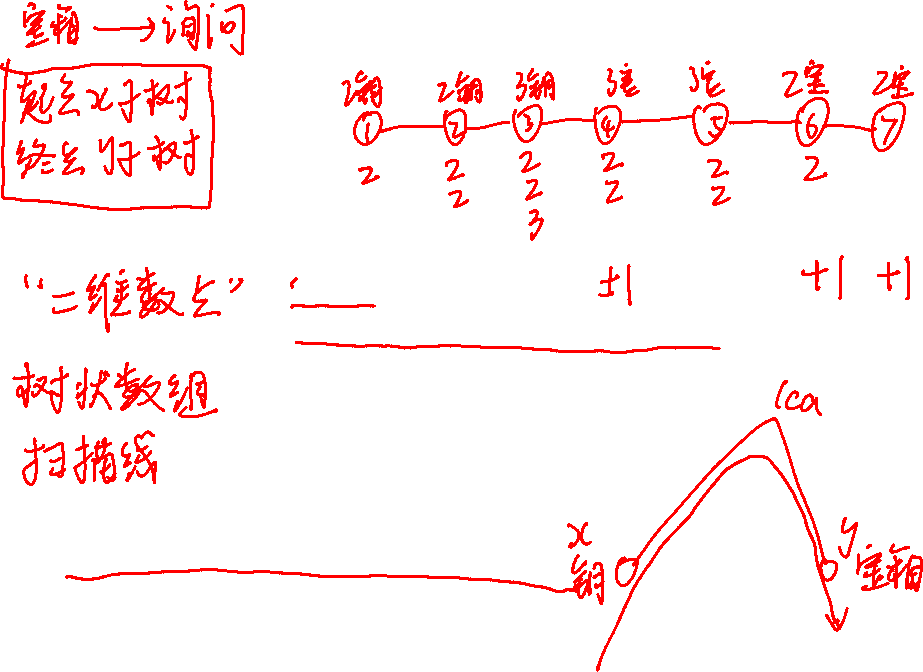 宝箱 → 询问
起点x子树
终点y子树
2钥 2钥 3钥 3宝 3宝 2宝 2宝
① ② ③ ④ ⑤ ⑥ ⑦
2 2 2 2 2 2
2 2 2 2
3
“二维数点”
±1 +1 +1
树状数组
扫描线
lca
x y
钥 宝箱